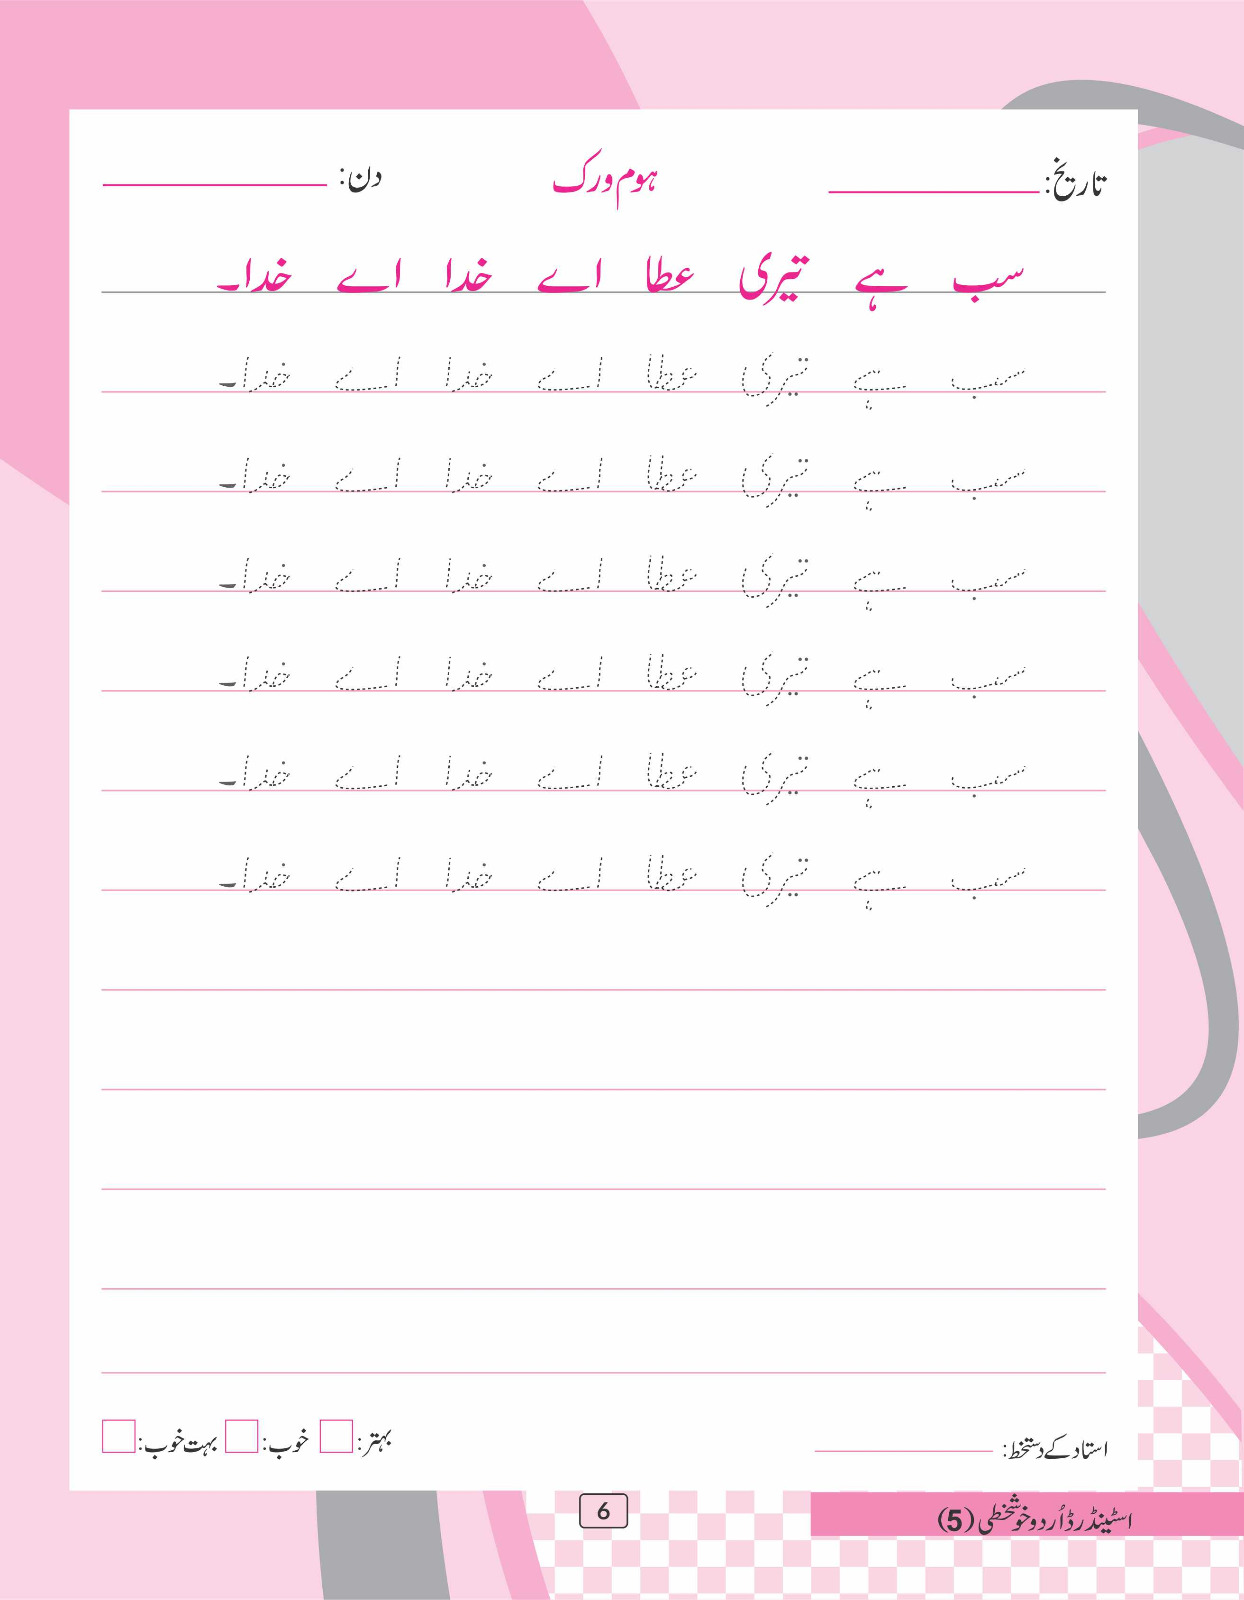 تاریخ: ہوم ورک دن:
سب ہے تیری عطا اے خدا اے خدا۔
سب ہے تیری عطا اے خدا اے خدا۔
سب ہے تیری عطا اے خدا اے خدا۔
سب ہے تیری عطا اے خدا اے خدا۔
سب ہے تیری عطا اے خدا اے خدا۔
سب ہے تیری عطا اے خدا اے خدا۔
سب ہے تیری عطا اے خدا اے خدا۔
استاد کے دستخط: بہتر: خوب: بہت خوب:
اسٹینڈرڈ اُردو خوشخطی (5) 6